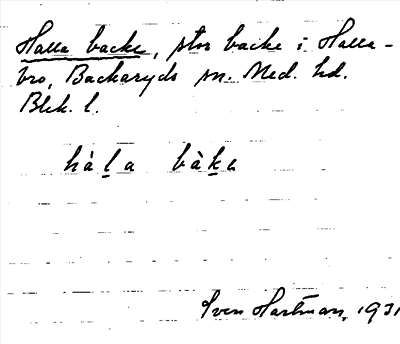 Halla backe, stor backe i Halla-
bro, Backaryds sn. Med. hd.
Blek. l.
hàl̲a bàk̲e
Sven Hartman, 1931